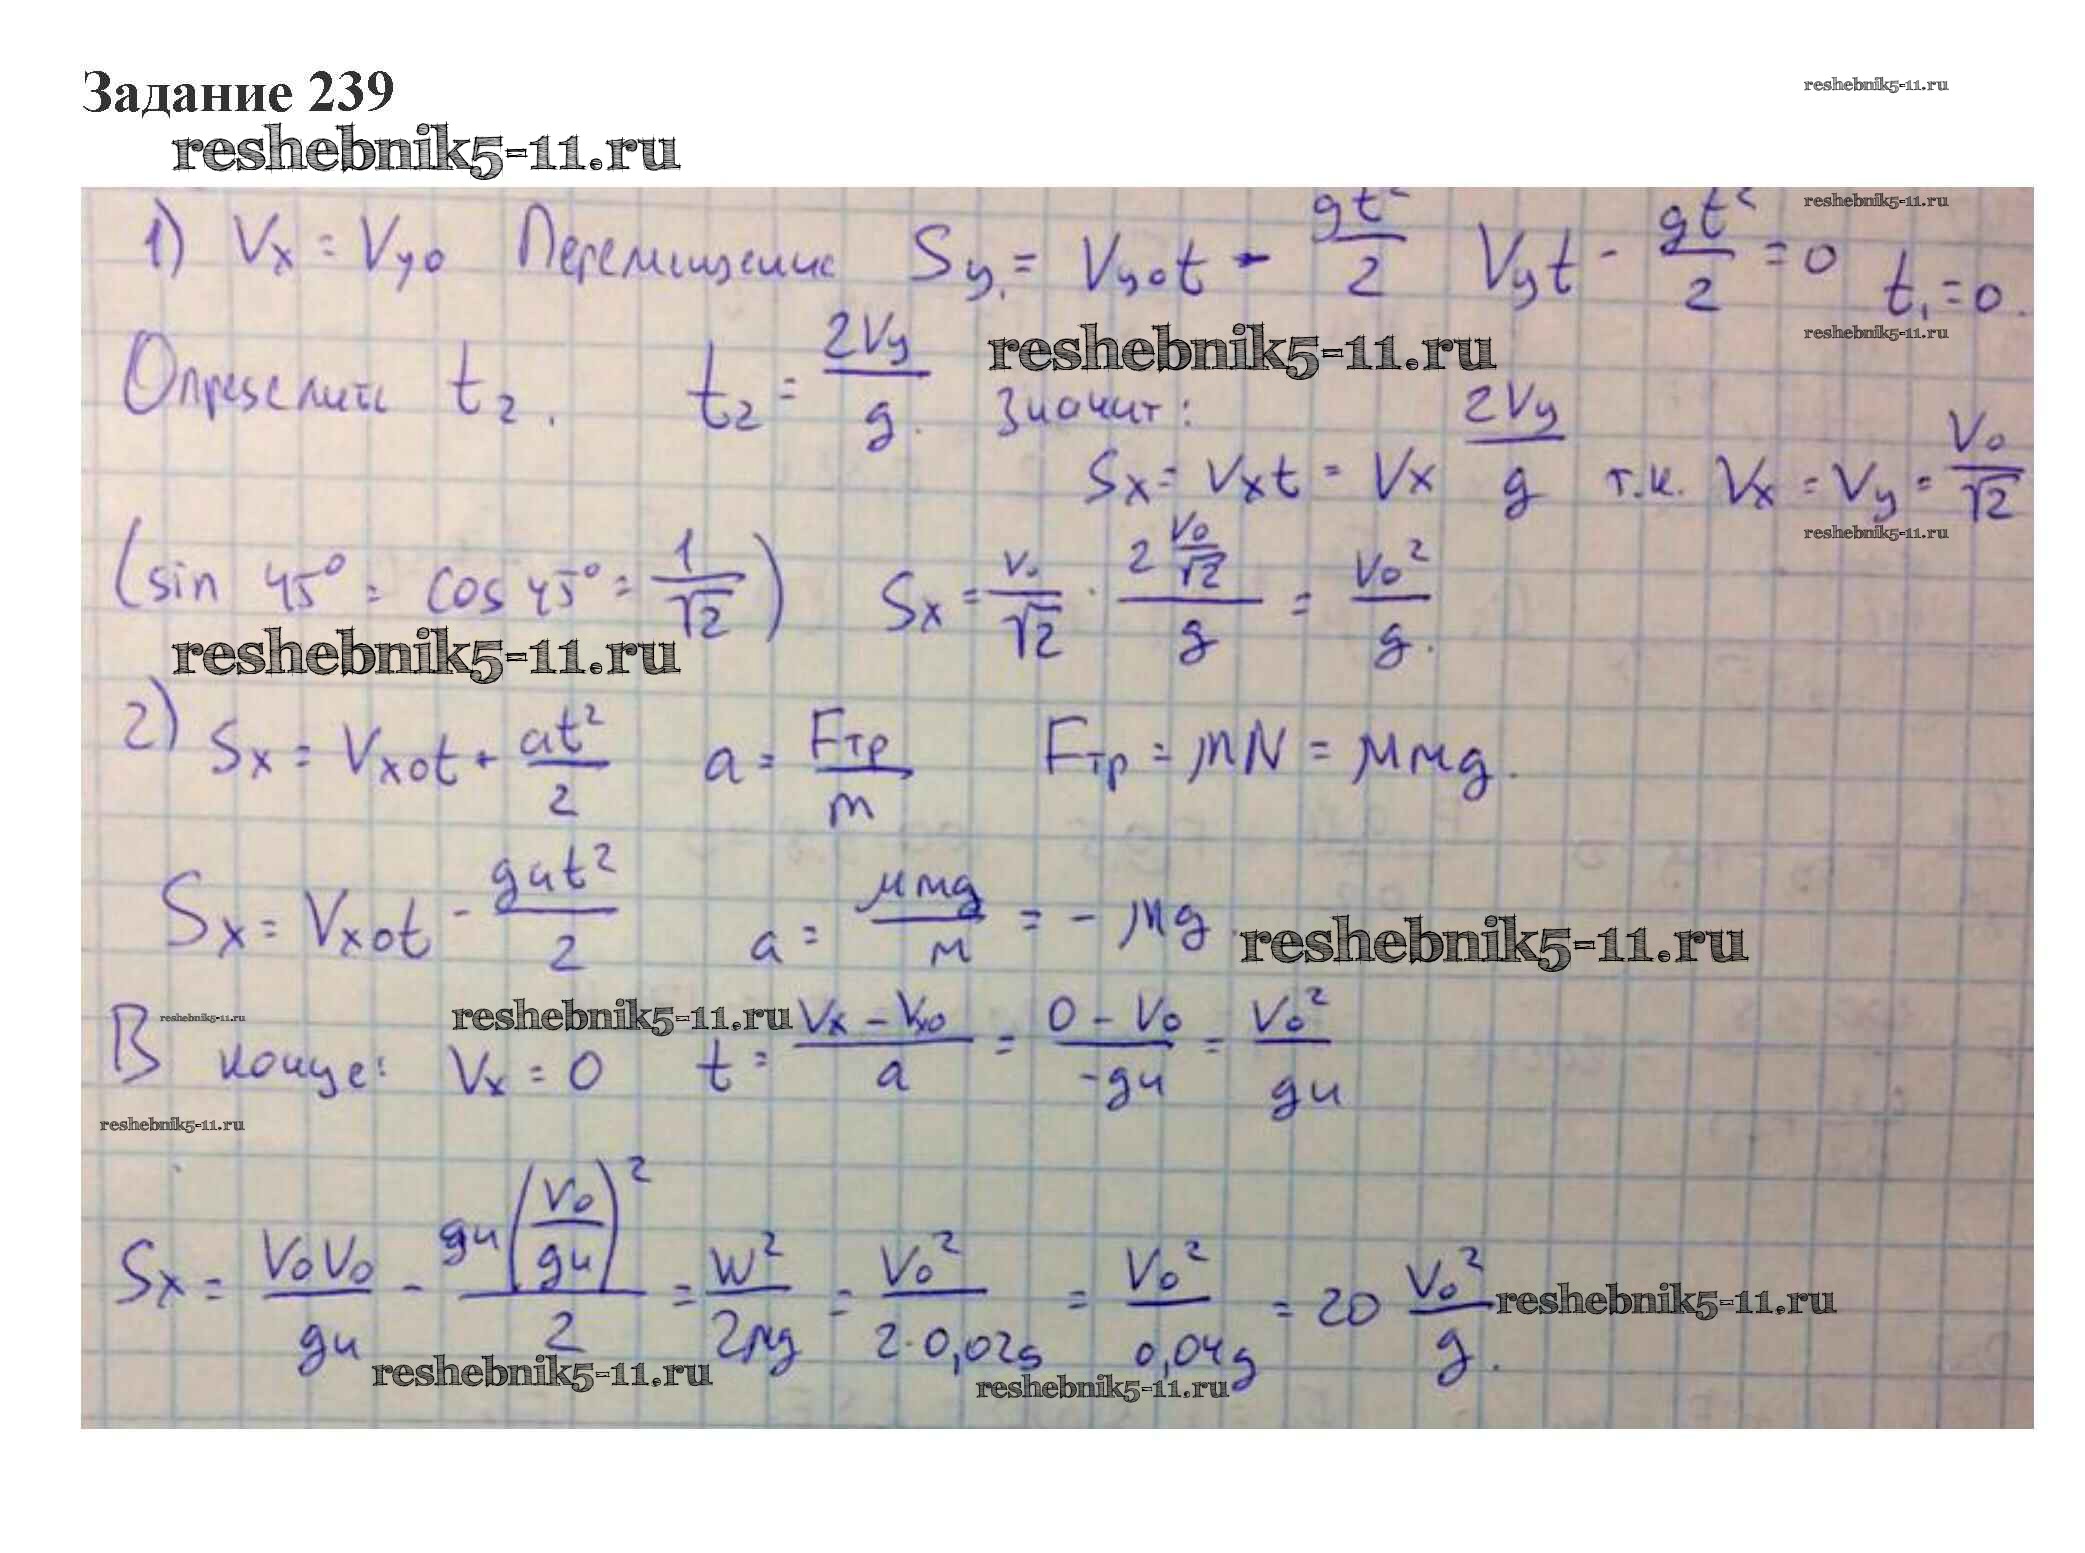 Задание 239
reshebnik5-11.ru
reshebnik5-11.ru
reshebnik5-11.ru
1) Vx = Vy0 Перемищение Sy = Vy0t - gt²/2 Vyt - gt²/2 = 0 t₁ = 0.
reshebnik5-11.ru
reshebnik5-11.ru
Определить t₂. t₂ = 2Vy/g. Значит:
Sx = Vxt = Vx 2Vy/g т.к. Vx = Vy = V₀/√2
reshebnik5-11.ru
(sin 45° = cos 45° = 1/√2) Sx = V₀/√2 · 2 V₀/√2 / g = V₀²/g.
reshebnik5-11.ru
2) Sx = Vx0t + at²/2 a = Fтр/m Fтр = μN = μmg.
Sx = Vx0t - gμt²/2 a = μmg/m = - μg
reshebnik5-11.ru
reshebnik5-11.ru
reshebnik5-11.ru
В конце: Vx = 0 t = Vx - Vx0 / a = 0 - V₀ / -gμ = V₀²/gμ
reshebnik5-11.ru
Sx = V₀V₀/gμ - gμ(V₀/gμ)²/2 = W²/2μg = V₀²/2·0,02g = V₀²/0,04g = 20 V₀²/g.
reshebnik5-11.ru
reshebnik5-11.ru
reshebnik5-11.ru